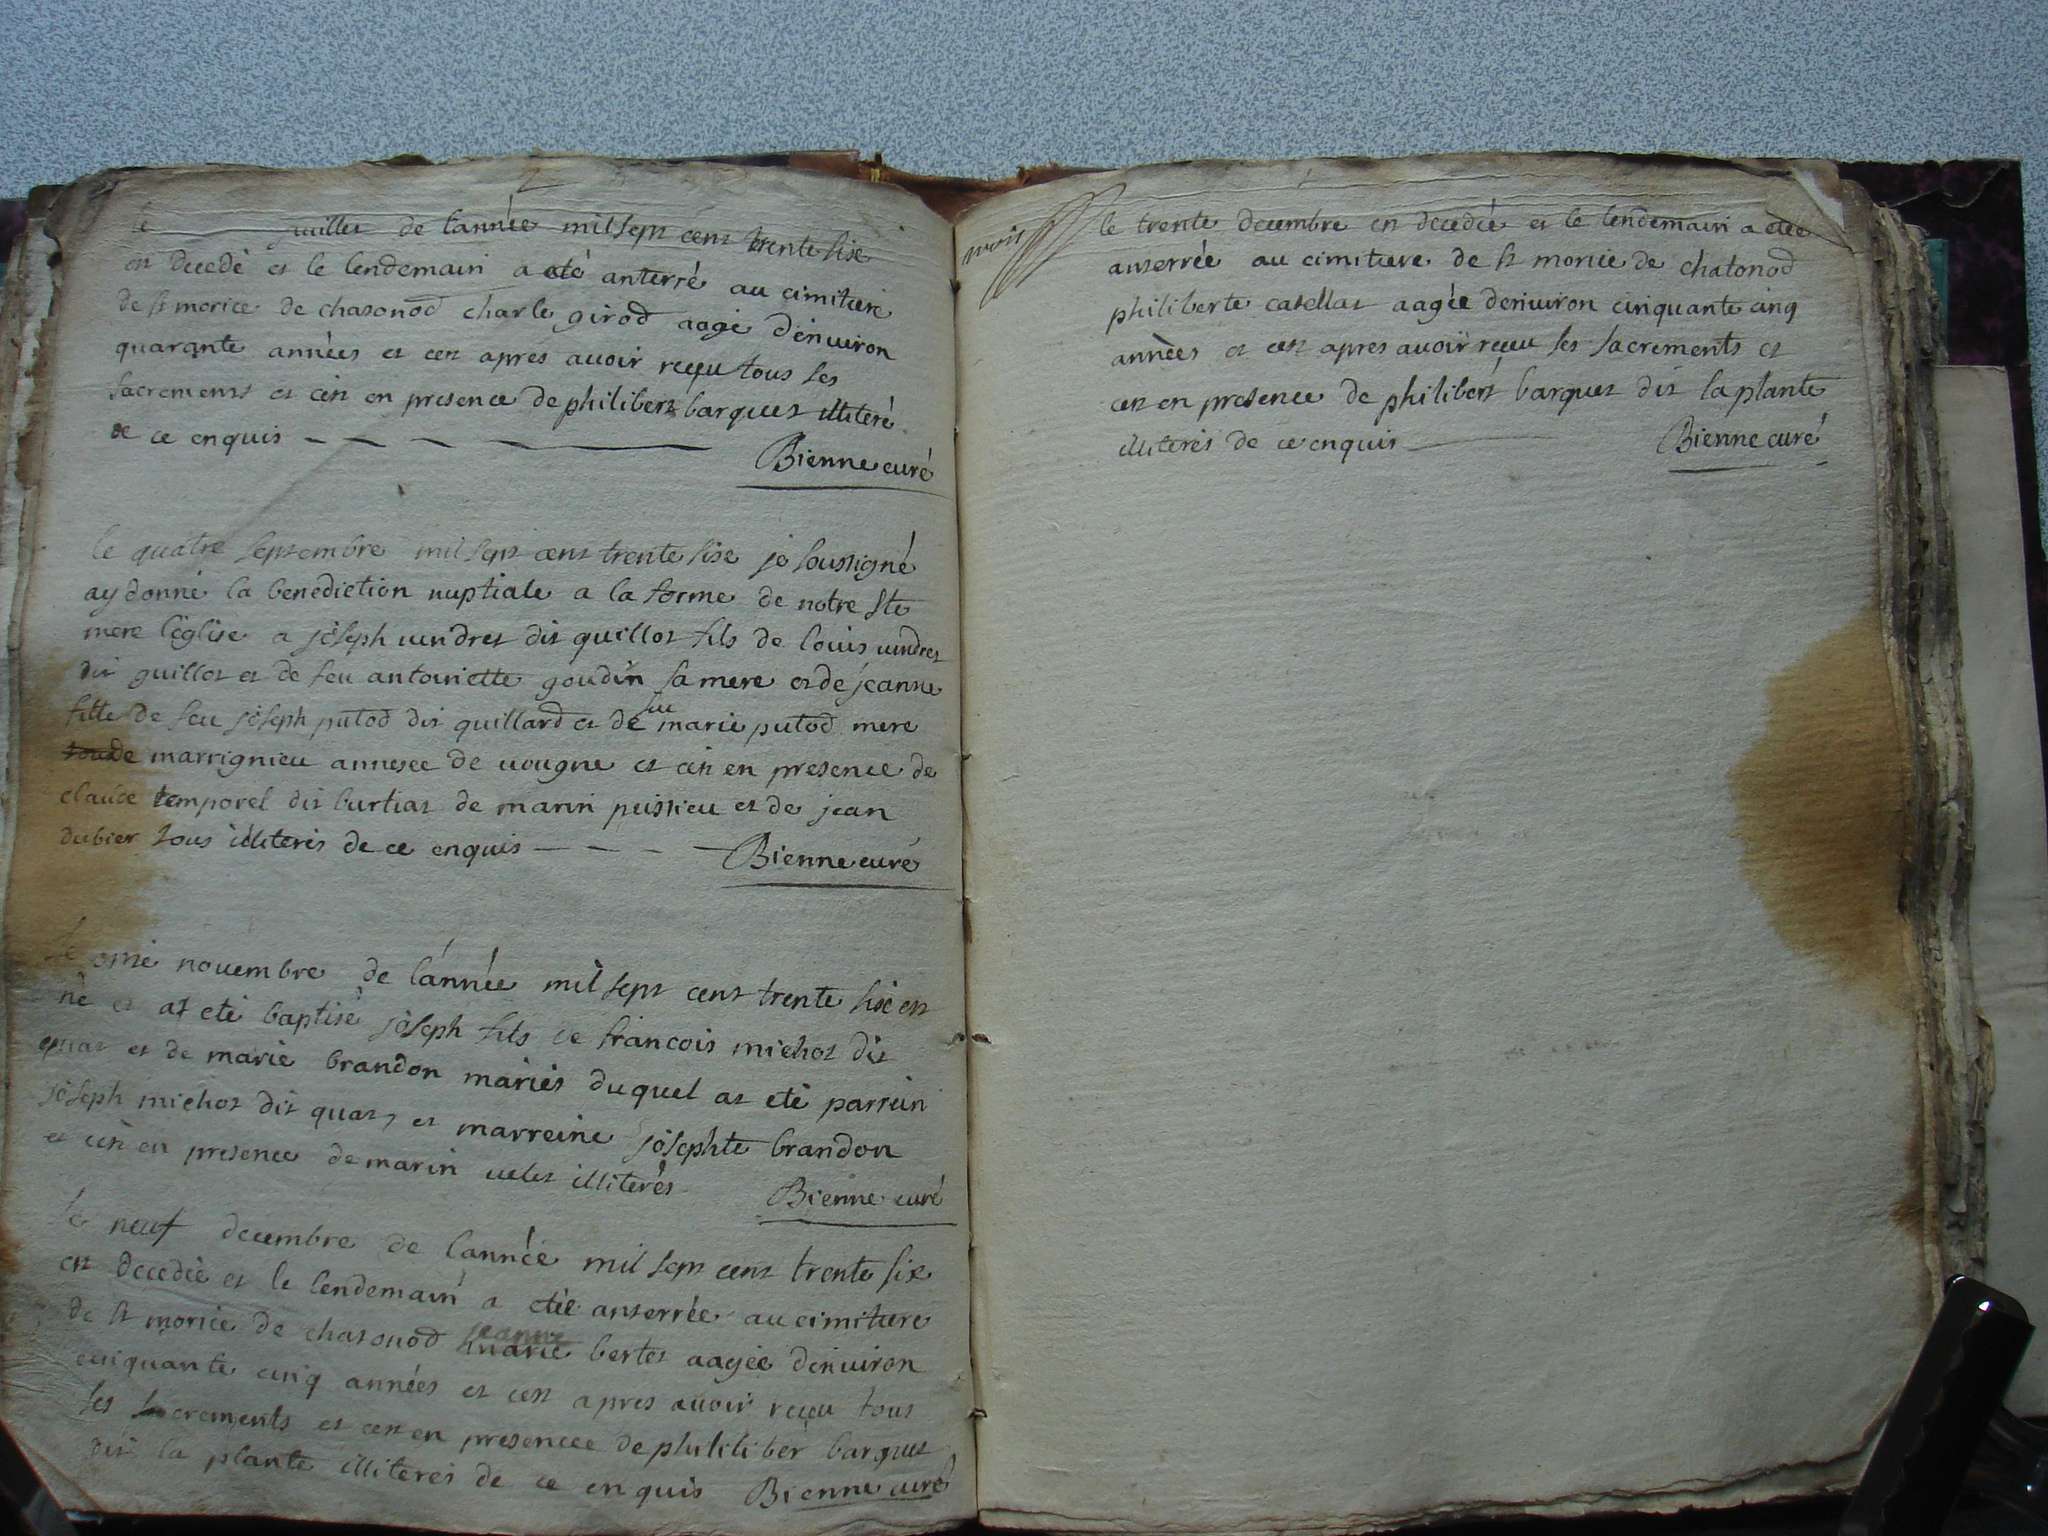 le juillet de l'année mil sept cent trente sixe
est decedé et le lendemain a eté anterré au cimitiere
de st morice de chatonod charle girod aagé d'enuiron
quarante années et cest apres auoir reçu tous ses
sacrements et cest en presence de philibert barquet illiteré
de ce enquis
Bienne curé
le quatre septembre mil sept cent trente sixe je soussigné
ay donné la benediction nuptiale a la forme de notre ste
mere l'église a joseph uindret dit guillot fils de louis uindret
dit guillot et de feu antoinette goudin sa mere et de jeanne
fille de feu joseph putod dit guillard et de feu marie putod mere
de marrignieu annexee de uougne et cest en presence de
claude temporel dit burtiat de marin et de jean
dubier tous illiterés de ce enquis
Bienne curé
le onze nouembre de l'année mil sept cent trente sixe est
né et at eté baptisé joseph fils de francois michot dit
quat et de marie brandon mariés duquel at eté parrein
joseph michot dit quat, et marreine josephte brandon
et cest en presence de marin uelet illiterés
Bienne curé
le neuf decembre de l'année mil sept cent trente six
est decedée et le lendemain a etée anterrée au cimitiere
de st morice de chatonod jeanne bertet aagée d'enuiron
cinquante cinq années et cest apres auoir reçu tous
ses sacrements et cest en presencee de philiber barquet
dit la plante illiterés de ce enquis Bienne curé
le trente decembre est decedée et le lendemain a etée
anterrée au cimitiere de st morice de chatonod
philiberte catellat aagée d'enuiron cinquante cinq
années et cest apres auoir reçeu ses sacrements et
cest en presence de philibert barquet dit la plante
illiterés de ce enquis
Bienne curé